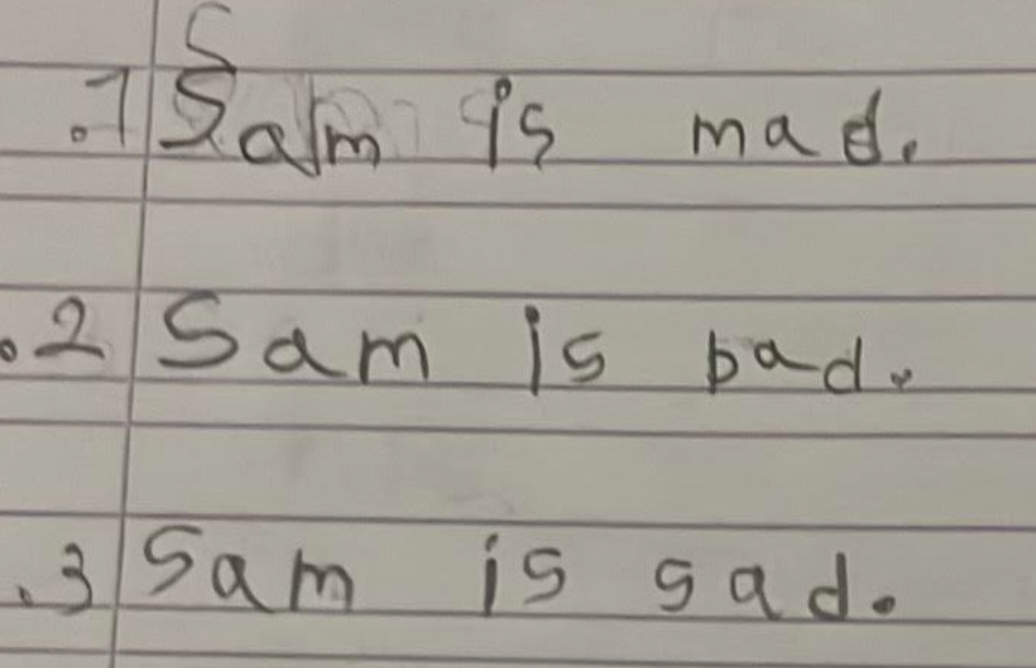 .1 Sam is mad.
.2 Sam is bad.
.3 Sam is sad.